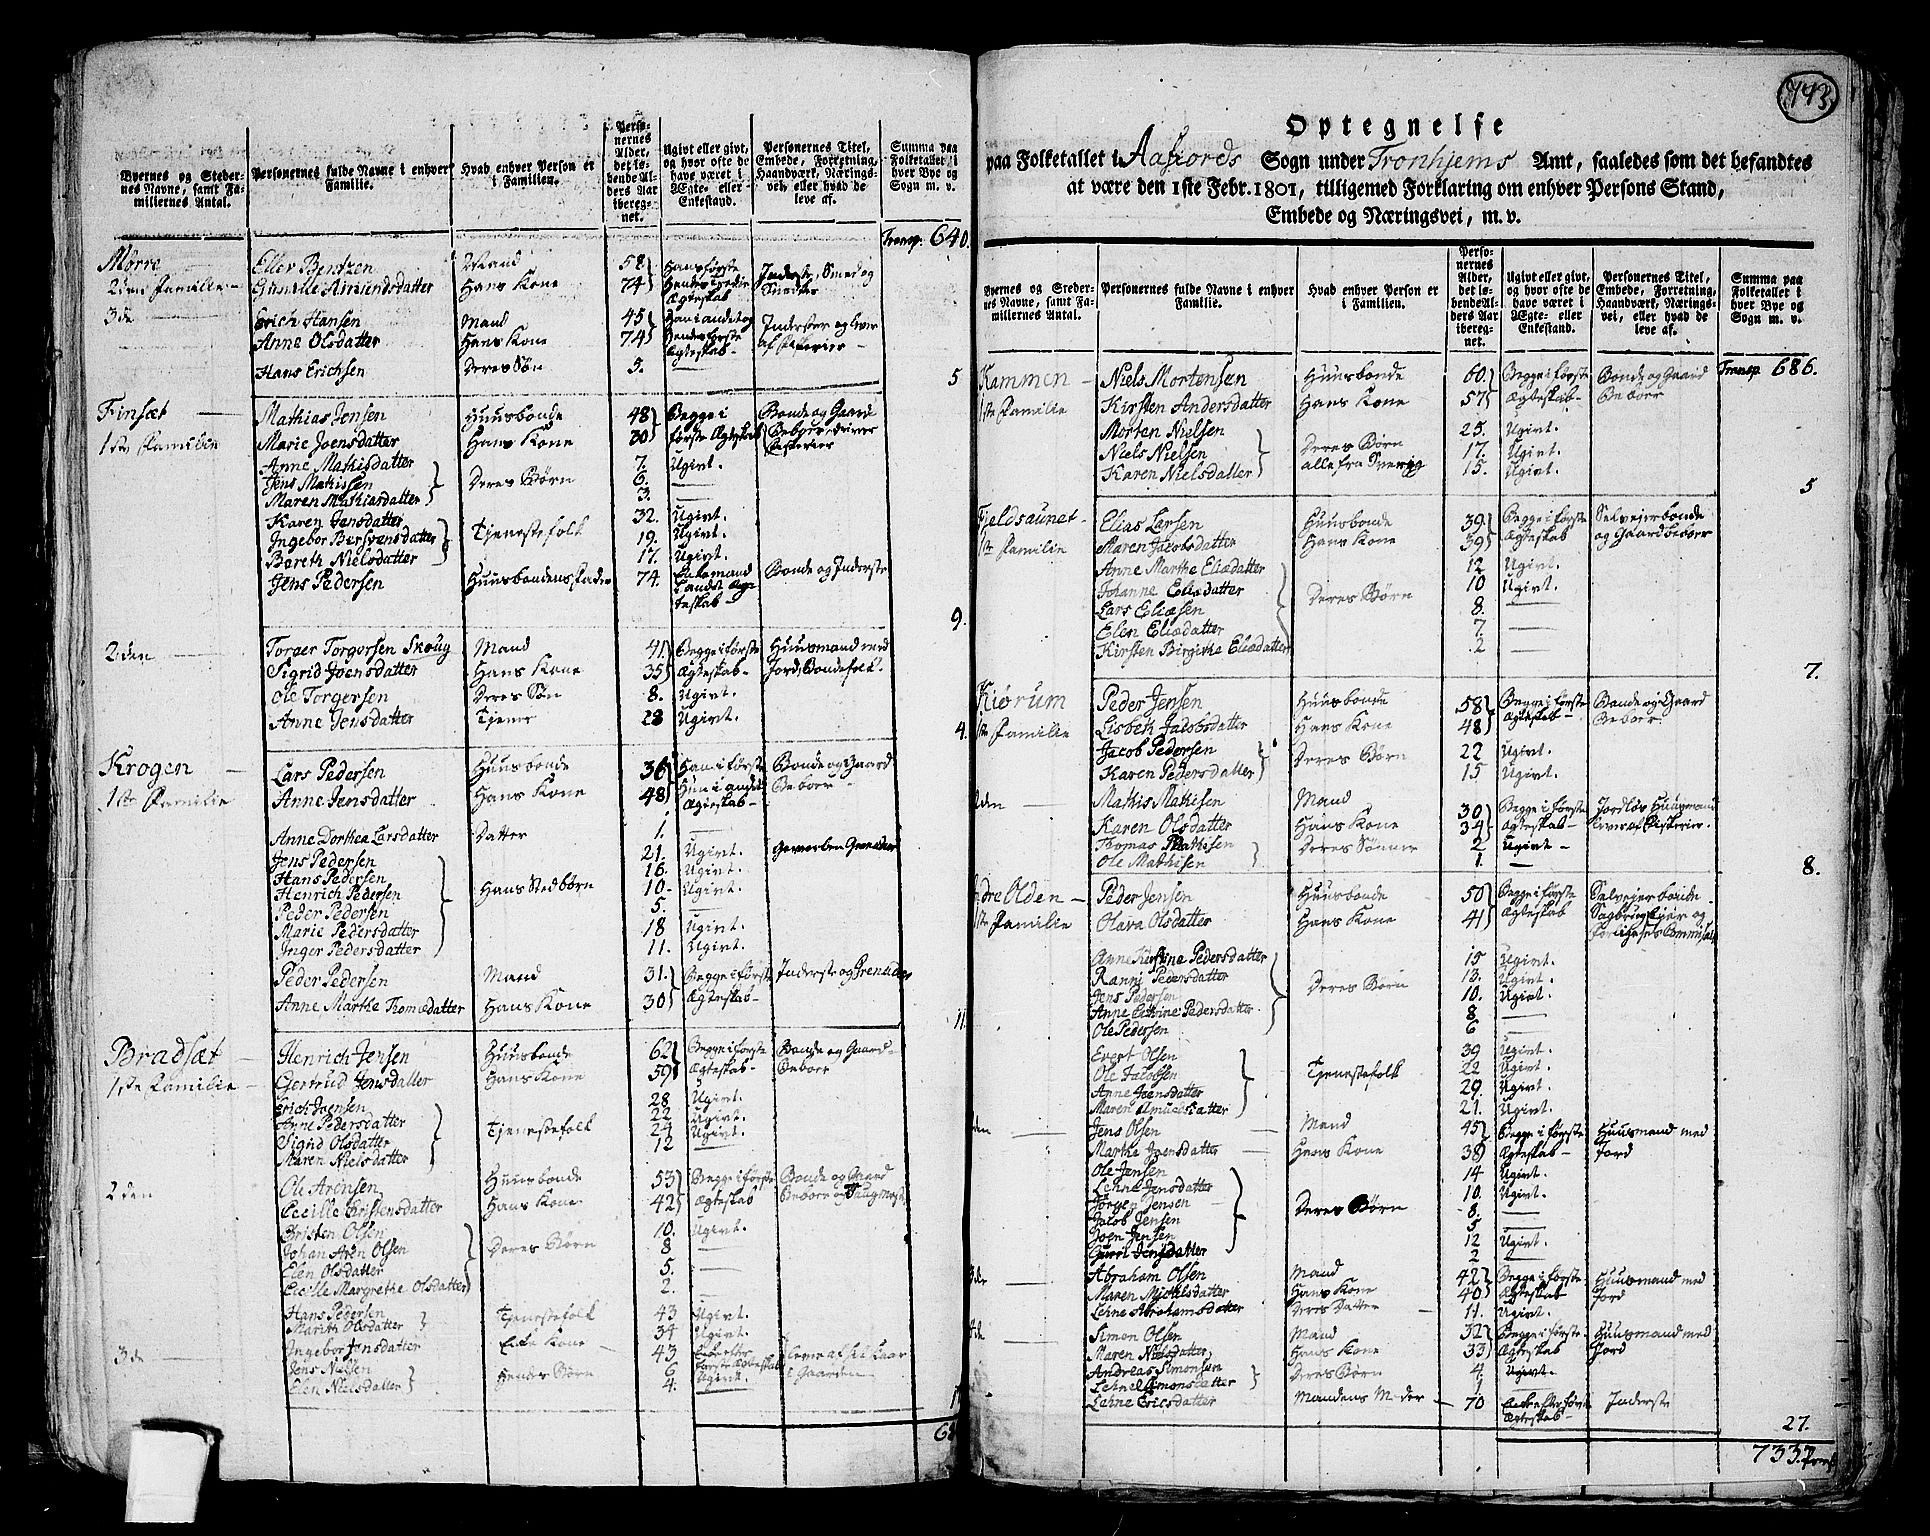 Byernes og Steder-
nes Navne, samt Fa-
miliernes Antal.
Personernes fulde Navne i enhver
Familie.
Hvad enhver Person er
i Familien.
Perso-
nernes
Alder,
det lø-
bende Al-
ders Aar
ibereg-
net.
Ugivt eller givt,
og hvor ofte de
have været i
Ægte- eller
Enkestand.
Personernes Titel,
Embede, Forretning,
Haandværk, Nærings-
vei, eller hvad de
leve af.
Summa paa
Folketallet i
hver Bye og
Sogn m. v.
Transp. 640.
Morre Eller Bentzen Mand 58 Hans første Inderste, Smed og
2den Familie Gunille Amundsdatter Hans Kone 74 Hendes
Ægteskab
3de Erich Hansen Mand 45 Han i andet og Inderster og lever
Anne Olsdatter Hans Kone 74 Hendes første af Fiskerier
Ægteskab
Hans Erichsen Deres Søn 5.
5
Finsæt Mathias Jensen Huusbonde 48 Begge i Bonde og Gaard
1ste Familie Marie Joensdatter Hans Kone 30 første Ægteskab
Fiskerier
Anne Mathisdatter 7. Ugivt.
Jens Mathissen Deres Børn 6.
Maren Mathiasdatter 3.
Karen Jensdatter 32. Ugivt.
Ingebor Bersvensdatter Tjenestefolk 19. Ugivt.
Bereth Nielsdatter 17. Ugivt.
Jens Pedersen Huusbondens Fader 74. Enkemand Bonde og Inderste
teskab
9.
2den Torger Torgersen Skoug Mand 41 Begge i første Huusmand med
Sigrid Joensdatter Hans Kone 35 Ægteskab Jord, Bondefolk
Ole Torgersen Deres Søn 8. Ugivt.
Anne Jensdatter Tjener 28 Ugivt.
4.
Krogen Lars Pedersen Huusbonde 36 Han i første Bonde og Gaard
1ste Familie Anne Jensdatter Hans Kone 48 Hun i andet Beboer
Ægteskab
Anne Dorthea Larsdatter Datter 1.
Jens Pedersen 21. Ugivt.
Hans Pedersen 16. Ugivt.
Henrich Pedersen Hans Stedbørn 10. Ugivt.
Peder Pedersen 5.
Marie Pedersdatter 18 Ugivt.
Inger Pedersdatter 11. Ugivt.
Peder Pedersen Mand 31. Begge i første Inderste og Grenader
Anne Marthe Thomædatter Hans Kone 30 Ægteskab
11.
Bradsæt Henrich Jensen Huusbonde 62 Begge i første Bonde og Gaard
1ste Familie Gertrud Jensdatter Hans Kone 59 Ægteskab Beboer
Erich Joensen 28 Ugivt.
Arne Pedersdatter 22 Ugivt.
Sigrid Olsdatter Tjenestefolk 24 Ugivt.
Maren Nielsdatter 12
2den Ole Arensen Huusbonde 53 Begge i første Bonde og Gaard
Cecille Christensdatter Hans Kone 42 Ægteskab
Christen Olsen 10. Ugivt.
Johan Aren Olsen Deres Børn 8
Elen Olsdatter 5.
Cecille Margrethe Olsdatter 2.
Hans Pedersen Tjenestefolk 43 Ugivt.
Marith Olsdatter 34 Ugivt.
3de Ingebor Jensdatter Enke Kone 43 Enke efter
første Ægteskab i Gaarden
Jens Nielsen Hendes Børn 6 Ugivt.
Elen Nielsdatter 4.
743
Optegnelse
paa Folketallet i Aafiords Sogn under Tronhjems Amt, saaledes som det befandtes
at være den 1ste Febr. 1801, tilligemed Forklaring om enhver Persons Stand,
Embede og Næringsvei, m. v.
Byernes og Steder-
nes Navne, samt Fa-
miliernes Antal.
Personernes fulde Navne i enhver
Familie.
Hvad enhver Person er
i Familien.
Perso-
nernes
Alder,
det lø-
bende Al-
ders Aar
ibereg-
net.
Ugivt eller givt,
og hvor ofte de
have været i
Ægte- eller
Enkestand.
Personernes Titel,
Embede, Forretning,
Haandværk, Nærings-
vei, eller hvad de
leve af.
Summa paa
Folketallet i
hver Bye og
Sogn m. v.
Transp. 686.
Kammen Niels Mortensen Huusbonde 60. Begge i første Bonde og Gaard
1ste Familie Kirsten Andersdatter Hans Kone 57 Ægteskab Beboer
Morten Nielsen 25. Ugivt.
Niels Nielsen Deres Børn 17. Ugivt.
Karen Nielsdatter alle fra Sverrig 15. Ugivt.
5
Fjeldsaunet Elias Larsen Huusbonde 39 Begge i første Selvejerbonde
1ste Familie Maren Jacobsdatter Hans Kone 39 Ægteskab og Gaardbeboer
Anne Marthe Eliædatter 12 Ugivt.
Johanne Eliædatter 10 Ugivt.
Lars Eliæsen Deres Børn 8.
Elen Eliædatter 7.
Kirsten Birgithe Eliædatter 2
7.
Kiørum Peder Jensen Huusbonde 58 Begge i første Bonde og Gaard
1ste Familie Lisbeth Jacobsdatter Hans Kone 48 Ægteskab Beboer
Jacob Pedersen Deres Børn 22 Ugivt.
Karen Pedersdatter 15 Ugivt.
2den Mathis Mathisen Mand 30 Begge i første Jordløs Huusmand
Karen Olsdatter Hans Kone 34 Ægteskab lever af Fiskerier.
Thomas Mathisen Deres Sønner 2 Ugivt
Ole Mathisen 1.
8.
Olden Peder Jensen Huusbonde 50 Begge i første Selvejer bonde
1ste Familie Olava Olsdatter Hans Kone 41 Ægteskab Sagbrugs Ejer og
Forligelses Commisair
Anne Pedersdatter 15 Ugivt.
Ranni Pedersdatter 13. Ugivt.
Jens Pedersen Deres Børn 10. Ugivt.
Anne Cathrine Pedersdatter 8
Ole Pedersen 6
Evert Olsen 39 Ugivt.
Ole Jacobsen Tjenestefolk 22 Ugivt.
Anne Joensdatter 29. Ugivt.
Maren Amundsdatter 21. Ugivt.
2den Jens Olsen Mand 45 Begge i første Huusmand med
Marthe Joensdatter Hans Kone 38 Ægteskab Jord
Ole Jensen 14 Ugivt.
Lehne Jensdatter 10. Ugivt.
Jørgen Jensen Deres Børn 8.
Jacob Jensen 5
Joen Jensen 12 Ugivt.
Gurri Jensdatter 2
3de Abraham Olsen Mand 42 Begge i første Huusmand med
Maren Michelsdatter Hans Kone 40 Ægteskab Jord
Lehne Abrahamsdatter Deres Datter 11. Ugivt.
4de Simon Olsen Mand 32 Begge i første Huusmand med
Maren Nielsdatter Hans Kone 33 Ægteskab Jord
Andreas Simonsen Deres Børn 4 Ugivt.
Lehne Simonsdatter 1
Lehne Ericsdatter Mandens Moder 70 Enke efter først Inderste
Ægteskab
27.
733. Transp.